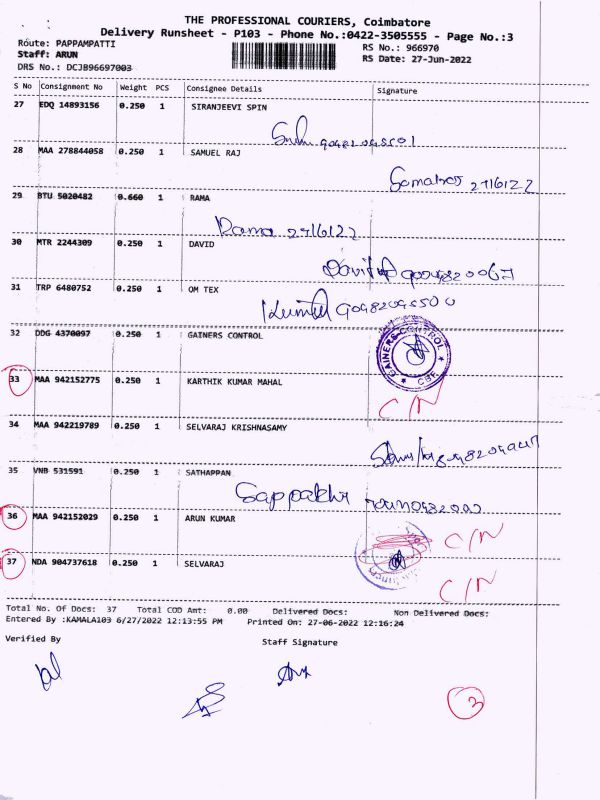 THE PROFESSIONAL COURIERS, Coimbatore
Delivery Runsheet - P103 - Phone No.:0422-3505555 - Page No.:3
Route: PAPPAMPATTI RS No.: 966970
Staff: ARUN RS Date: 27-Jun-2022
DRS No.: DCJB96697003
S No Consignment No Weight PCS Consignee Details Signature
27 EDQ 14893156 0.250 1 SIRANJEEVI SPIN
28 MAA 278844058 0.250 1 SAMUEL RAJ
27/6/22
29 BTU 5020482 0.660 1 RAMA
Rama 27/6/22
30 MTR 2244309 0.250 1 DAVID
David
31 TRP 6480752 0.250 1 OM TEX
32 DDG 4370097 0.250 1 GAINERS CONTROL
GAINERS CONTROL CBE
33 MAA 942152775 0.250 1 KARTHIK KUMAR MAHAL
C/N
34 MAA 942219789 0.250 1 SELVARAJ KRISHNASAMY
35 VNB 531591 0.250 1 SATHAPPAN
36 MAA 942152029 0.250 1 ARUN KUMAR
C/N
37 NDA 904737618 0.250 1 SELVARAJ
C/N
Total No. Of Docs: 37 Total COD Amt: 0.00 Delivered Docs: Non Delivered Docs:
Entered By :KAMALA103 6/27/2022 12:13:55 PM Printed On: 27-06-2022 12:16:24
Verified By Staff Signature
3